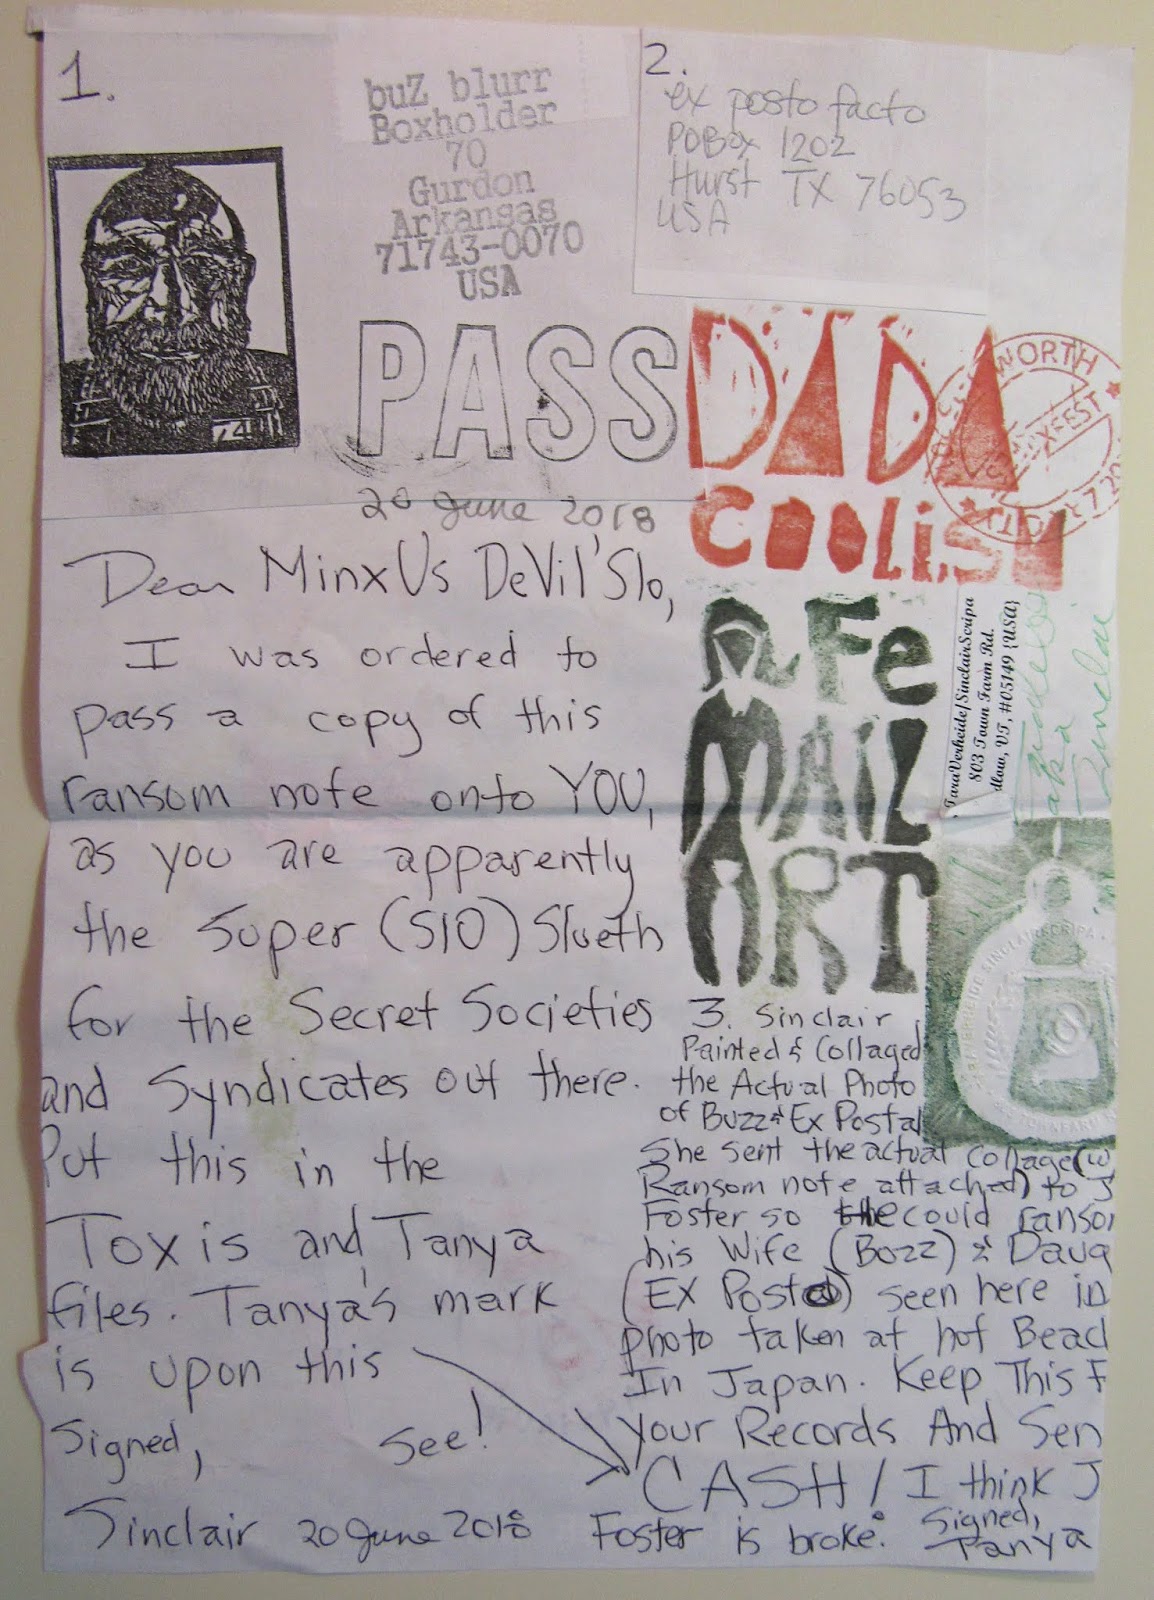 1.
buZ blurr
Boxholder
70
Gurdon
Arkansas
71743-0070
USA
2.
ex posto facto
POBox 1202
Hurst TX 76053
USA
74
PASS
DADA
COOLiSH
WORTH
XFEST
FeMAIL
ART
20 June 2018
Dear MinxUs DeVil'Slo,
I was ordered to
pass a copy of this
ransom note onto YOU,
as you are apparently
the Super (SlO) Slueth
for the Secret Societies
and Syndicates out there.
Put this in the
Toxis and Tanya
files. Tanya's mark
is upon this
Signed, See!
Sinclair 20 June 2018
TaraVerheide/SinclairScripa
803 Town Farm Rd.
dlow, VT, #05149 {USA}
aka
Sinclair
VERHEIDE SINCLAIRSCRIPA
3. Sinclair
Painted & Collaged
the Actual Photo
of Buzz & Ex Postal
She sent the actual collage (w
Ransom note attached) to J
Foster so he could ransom
his Wife (Bozz) & Daug
(Ex Posto) seen here in
photo taken at hot Beach
In Japan. Keep This F
your Records And Sen
CASH! I think J
Foster is broke. Signed,
Tanya